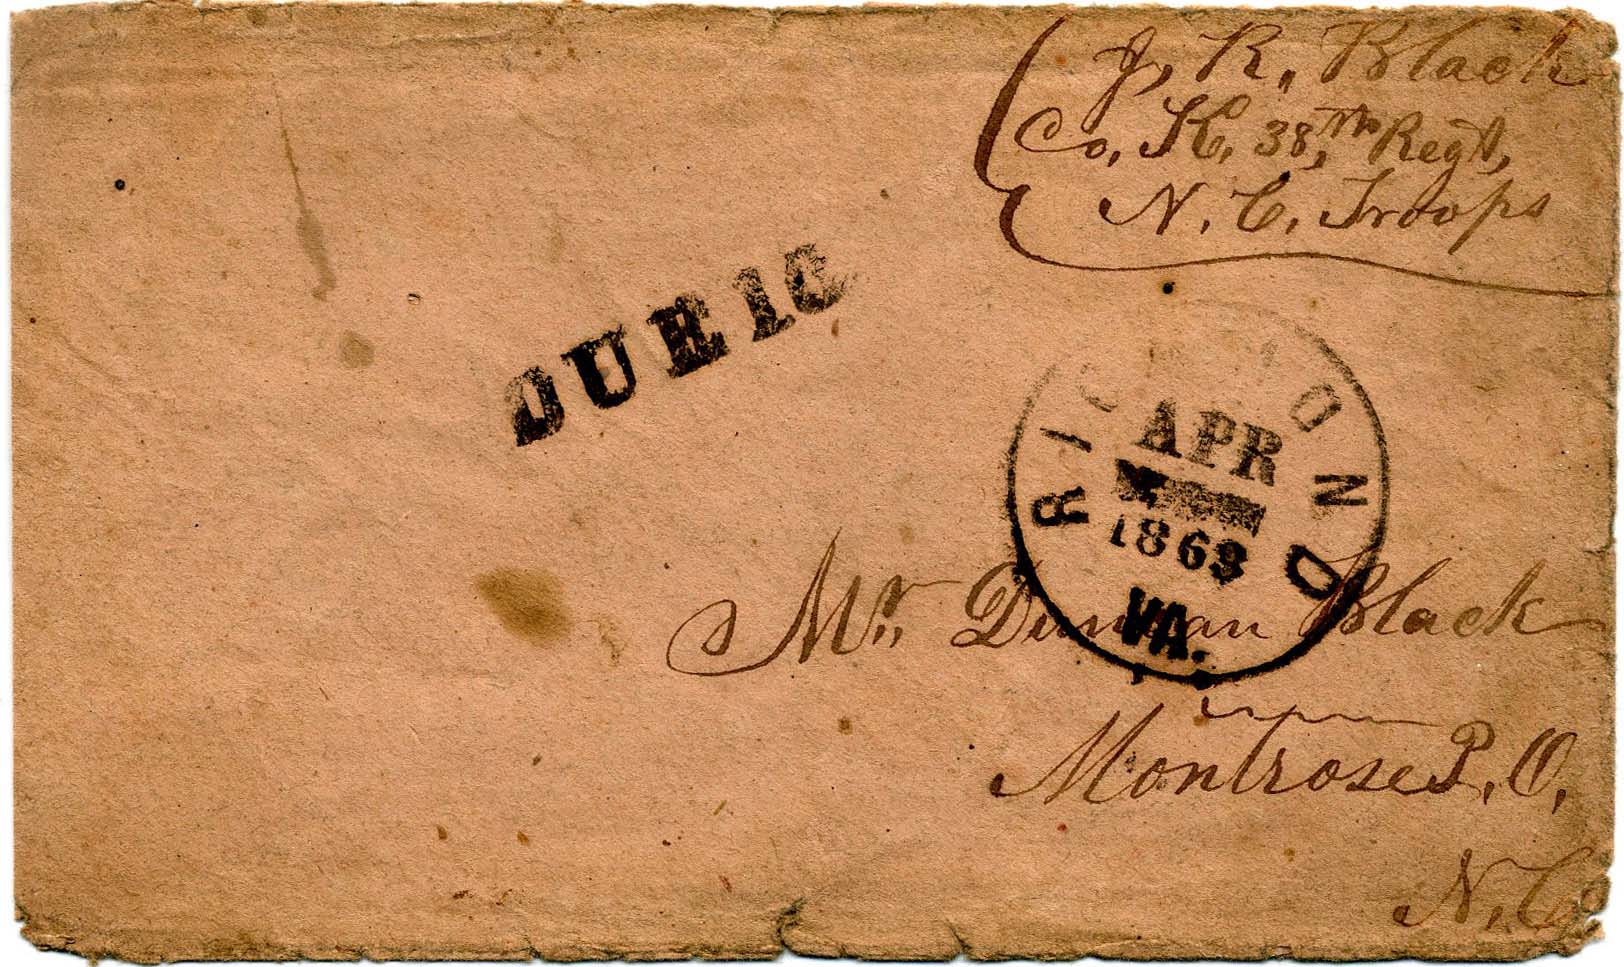 J, R, Black
Co, K, 38,th Regt,
N, C, Troops
DUE 10
RICHMOND
APR
1863
VA.
Mr, Duncan Black
Montrose P, O,
N, Ca